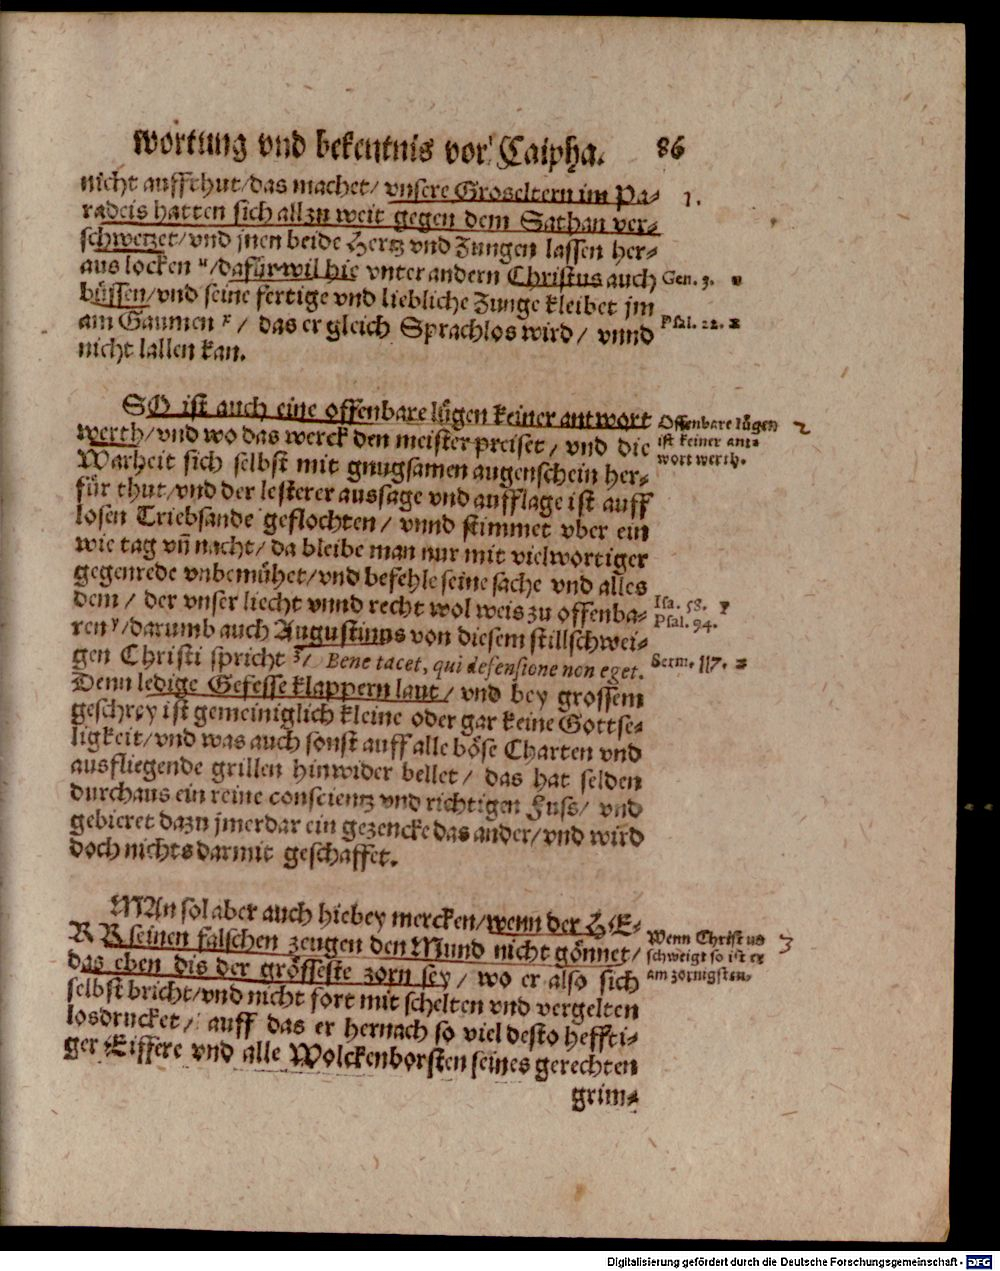 wortung vnd bekentnis vor Caipha. 86
nicht auffthut/das machet/vnsere Groseltern im Pa- 1.
radeis hatten sich allzu weit gegen dem Sathan ver-
schwetzet/vnd jnen beide Hertz vnd Zungen lassen her-
aus locken u/dafür wil hie vnter andern Christus auch Gen. 3. u
büssen/vnd seine fertige vnd liebliche Zunge kleibet jm
am Gaumen x/ das er gleich Sprachlos wird/ vnnd Psal. 22. x
nicht lallen kan.
SO ist auch eine offenbare lügen keiner antwort Offenbare lügen 2
werth/vnd wo das werck den meister preiset/ vnd die ist keiner ant-
Warheit sich selbst mit gnugsamen augenschein her- wort werth.
für thut/vnd der lesterer aussage vnd aufflage ist auff
losen Triebsande geflochten/ vnnd stimmet vber ein
wie tag vñ nacht/da bleibe man nur mit vielwortiger
gegenrede vnbemühet/vnd befehle seine sache vnd alles
dem/ der vnser liecht vnnd recht wol weis zu offenba- Isa. 58. y
ren y/darumb auch Augustinus von diesem stillschwei- Psal. 94.
gen Christi spricht z/ Bene tacet, qui defensione non eget. Serm. 117. z
Denn ledige Gefesse klappern laut/ vnd bey grossem
geschrey ist gemeiniglich kleine oder gar keine Gottse-
ligkeit/vnd was auch sonst auff alle böse Charten vnd
ausfliegende grillen hinwider bellet/ das hat selden
durchaus ein reine conscientz vnd richtigen Fuss/ vnd
gebieret dazu jmerdar ein gezencke das ander/vnd wird
doch nichts darmit geschaffet.
MAn sol aber auch hiebey mercken/wenn der HE-
RR seinen falschen zeugen den Mund nicht gönnet/ Wenn Christus 3
das eben dis der grösseste zorn sey/ wo er also sich schweigt so ist er
selbst bricht/vnd nicht fort mit schelten vnd vergelten am zornigsten.
losdrucket/ auff das er hernach so viel desto heffti-
ger Eiffere vnd alle Wolckenborsten seines gerechten
grim-
Digitalisierung gefördert durch die Deutsche Forschungsgemeinschaft - DFG